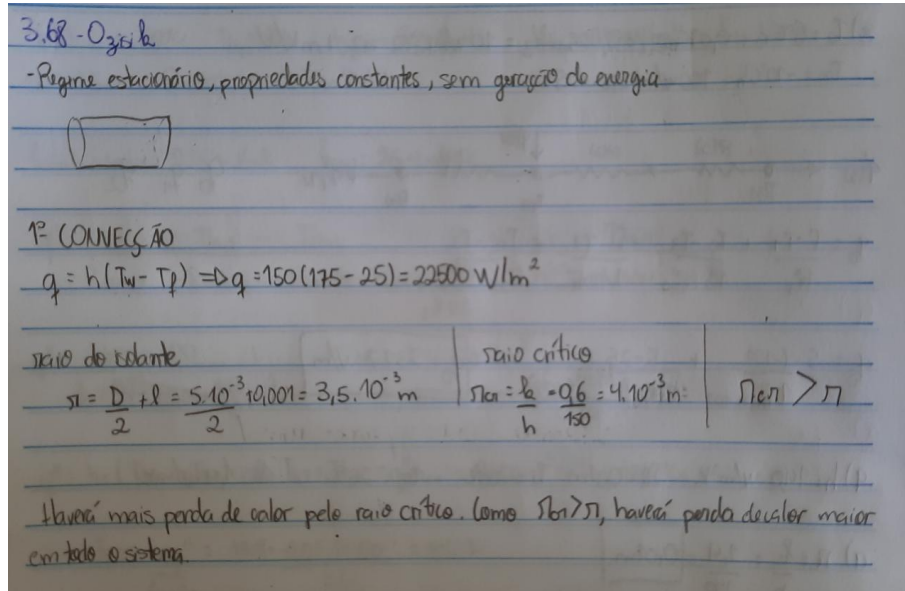 3.68 - Ozisik
- Regime estacionário, propriedades constantes, sem geração de energia
1º CONVECÇÃO
q = h(Tw - Tf) => q = 150(175 - 25) = 22500 W/m²
raio do isolante
r = D/2 + l = 5.10⁻³/2 + 0,001 = 3,5.10⁻³ m
raio crítico
rcr = k/h = 0,6/150 = 4.10⁻³ m
rcr > r
Haverá mais perda de calor pelo raio crítico. Como rcr > r, haverá perda de calor maior
em todo o sistema.